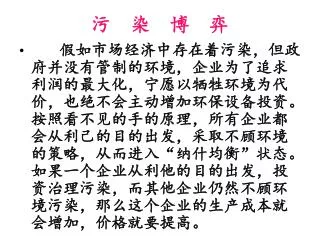 污 染 博 弈
• 假如市场经济中存在着污染，但政
府并没有管制的环境，企业为了追求
利润的最大化，宁愿以牺牲环境为代
价，也绝不会主动增加环保设备投资。
按照看不见的手的原理，所有企业都
会从利己的目的出发，采取不顾环境
的策略，从而进入“纳什均衡”状态。
如果一个企业从利他的目的出发，投
资治理污染，而其他企业仍然不顾环
境污染，那么这个企业的生产成本就
会增加，价格就要提高。